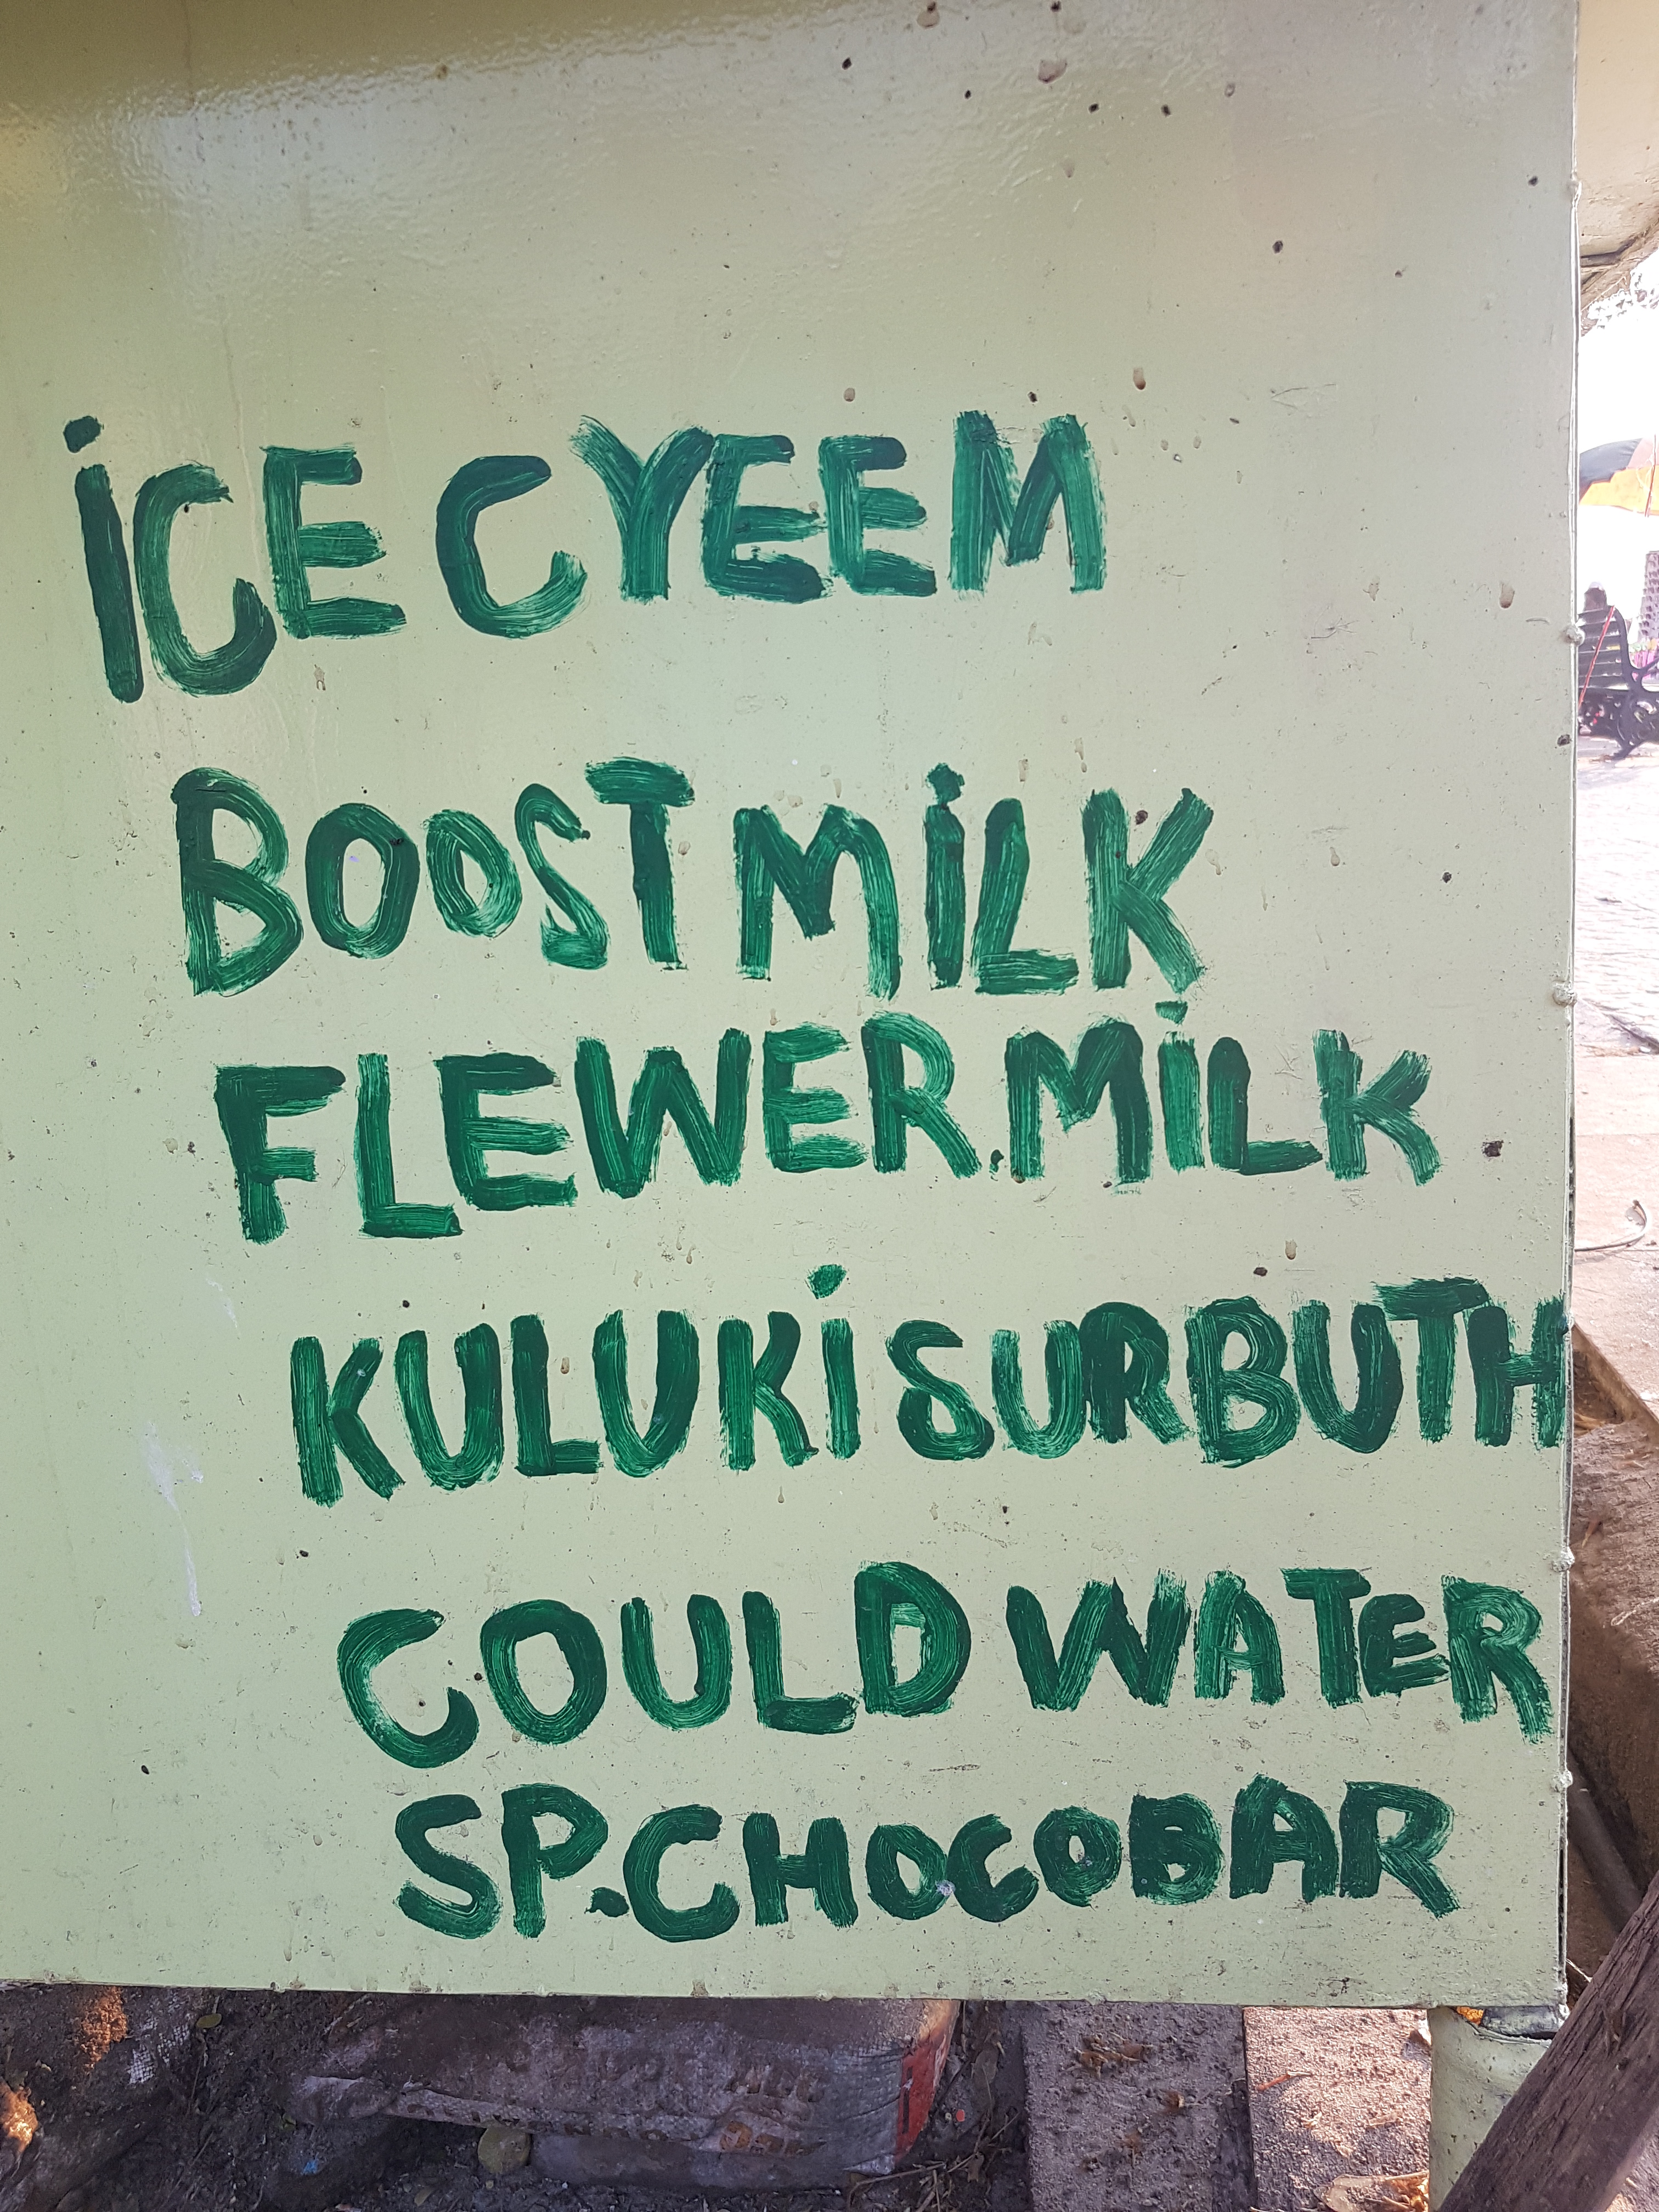 iCE CYEEM
BOOST MiLK
FLEWER.MiLK
KULUKi SURBUTH
COULD WATER
SP.CHOCOBAR